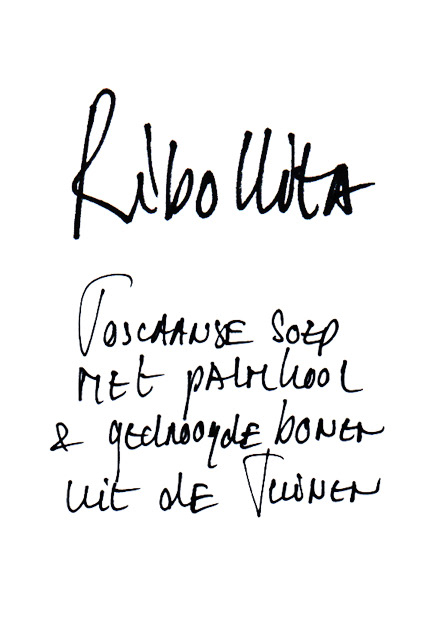 Ribollita
Toscaanse soep
met palmkool
& gedroogde bonen
uit de Tuinen